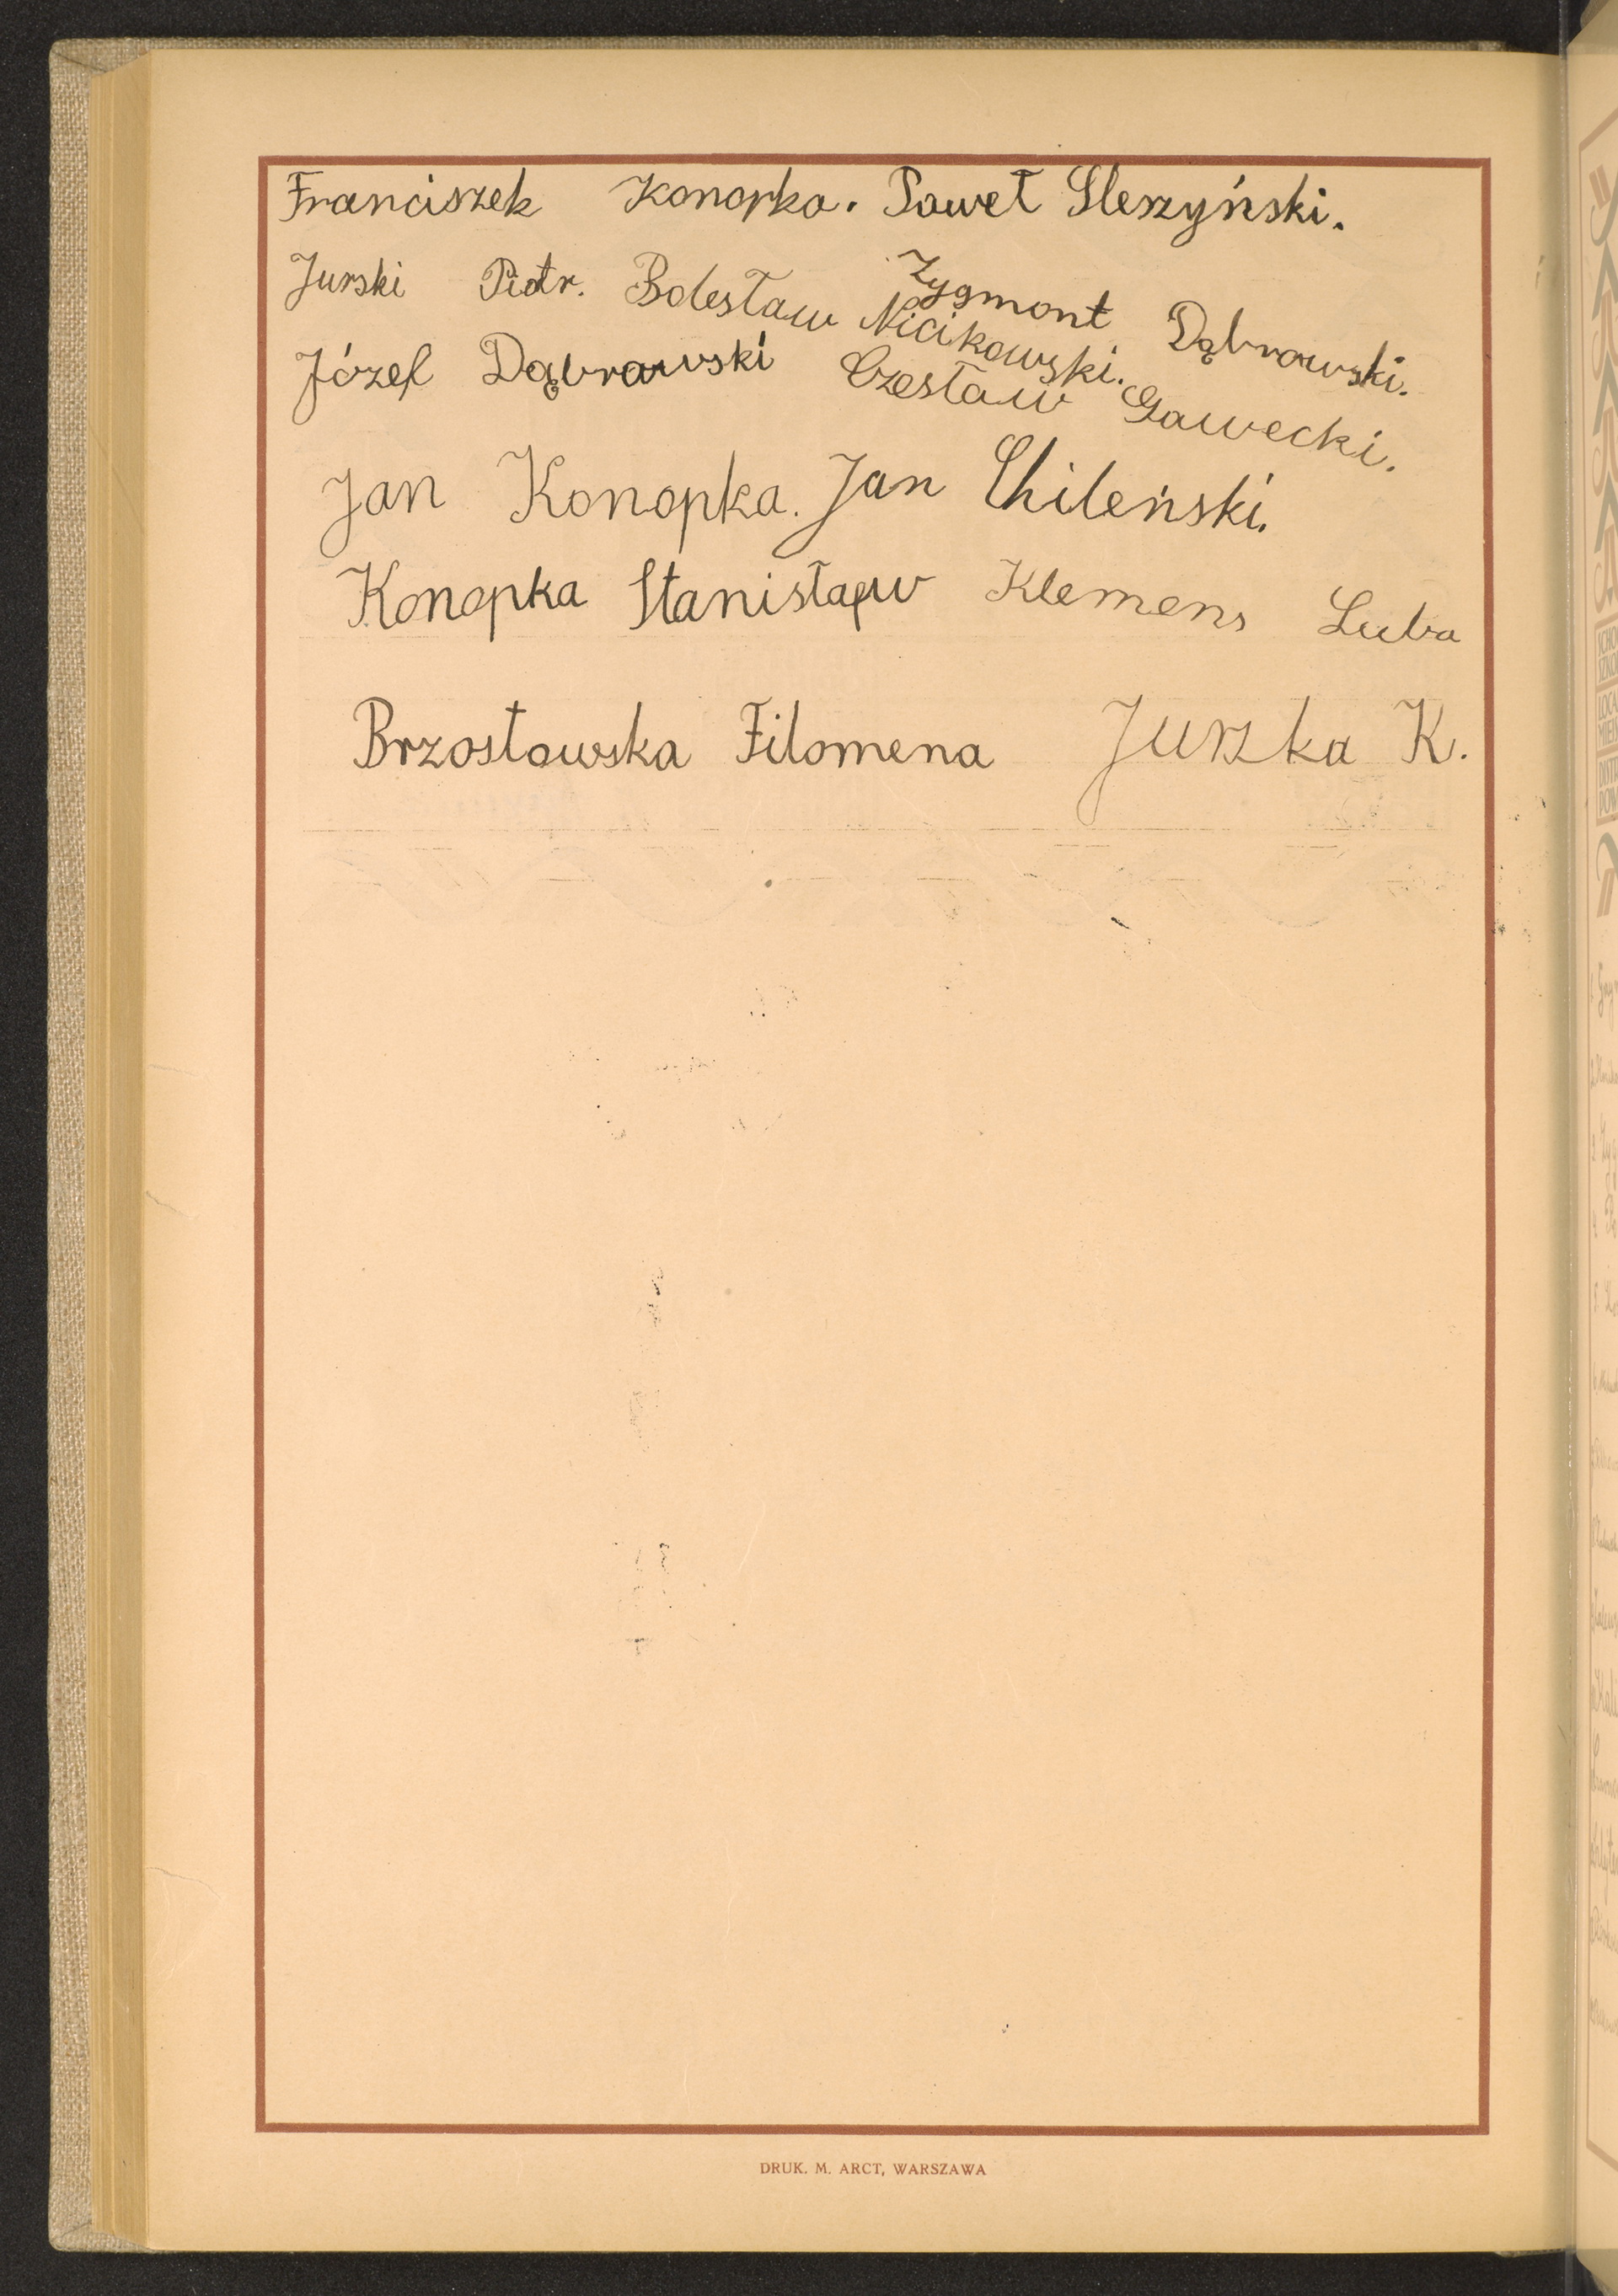 Franciszek Konopka. Paweł Sleszyński.
Jurski Piotr. Bolesław Nicikowski. Zygmont Dąbrowski.
Józef Dąbrawski Czesław Gawecki.
Jan Konopka. Jan Chileński.
Konopka Stanisław Klemens Luba
Brzostowska Filomena Jurszka K.
DRUK. M. ARCT, WARSZAWA